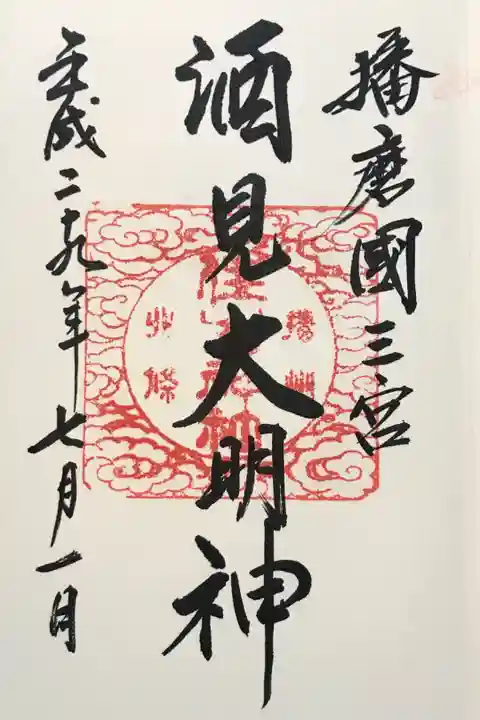 播磨國三宮
酒見大明神
平成二十九年七月一日
播州
住吉大神
北條